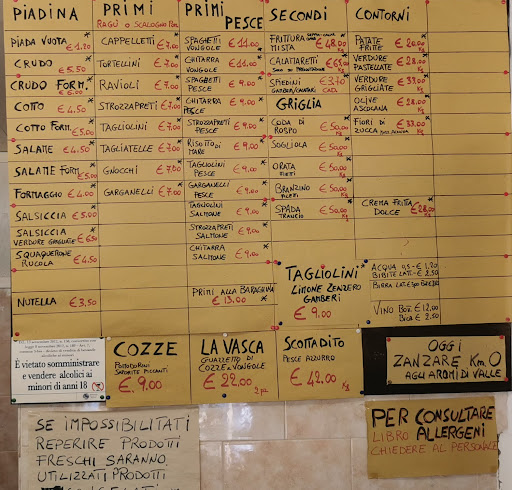 PIADINA
PIADA VUOTA € 1.20
CRUDO € 5.50
CRUDO FORM. € 6.00
COTTO € 4.50
COTTO FORM. € 5.00
SALAME € 4.50
SALAME FORM € 5.00
FORMAGGIO € 4.00
SALSICCIA € 5.00
SALSICCIA
VERDURE GRIGLIATE € 6.50
SQUAQUERONE
RUCOLA € 4.50
NUTELLA € 3.50
PRIMI
RAGÙ O SCALOGNO
CAPPELLETTI € 7.00
TORTELLINI € 7.00
RAVIOLI € 7.00
STROZZAPRETI € 7.00
TAGLIOLINI € 7.00
TAGLIATELLE € 7.00
GNOCCHI € 7.00
GARGANELLI € 7.00
PRIMI
PESCE
SPAGHETTI
VONGOLE € 11.00
CHITARRA
VONGOLE € 11.00
SPAGHETTI
PESCE € 9.00
CHITARRA
PESCE € 9.00
STROZZAPRETI
PESCE € 9.00
RISOTTO DI
MARE € 9.00
TAGLIOLINI
PESCE € 9.00
GARGANELLI
PESCE € 9.00
TAGLIOLINI
SALMONE € 9.00
STROZZAPRETI
SALMONE € 9.00
CHITARRA
SALMONE € 9.00
PRIMI ALLA BARACHINA
€ 13.00
SECONDI
FRITTURA
MISTA € 48.00 Kg
CALAMARETTI
SPIEDINI € 3.70
GAMBERI/CALAMARI CAD.
GRIGLIA
CODA DI
ROSPO € 50.00 Kg
SOGLIOLA € 50.00 Kg
ORATA
FILETTI € 50.00 Kg
BRANZINO
FILETTI € 50.00 Kg
SPADA
TRANCIO € 50.00 Kg
TAGLIOLINI
LIMONE ZENZERO
GAMBERI
€ 9.00
CONTORNI
PATATE
FRITTE € 20.00 Kg
VERDURE
PASTELLATE € 28.00 Kg
VERDURE
GRIGLIATE € 33.00 Kg
OLIVE
ASCOLANA € 28.00 Kg
FIORI DI
ZUCCA € 33.00 Kg
CREMA FRITTA
DOLCE € 28.00 Kg
ACQUA 0,5 - € 1.20
BIBITE LATT. - € 2.50
BIRRA LAT
VINO BOT. € 12.00
BICC. € 2.50
È vietato somministrare
e vendere alcolici ai
minori di anni 18
COZZE
POMODORINI
SAPORITE PICCANTI
€ 9.00
LA VASCA
GUAZZETTO DI
COZZE E VONGOLE
€ 22.00
SCOTTADITO
PESCE AZZURRO
€ 42.00
Kg
OGGI
ZANZARE KM 0
AGLI AROMI DI VALLE
SE IMPOSSIBILITATI
REPERIRE PRODOTTI
FRESCHI SARANNO
UTILIZZATI PRODOTTI
PER CONSULTARE
LIBRO ALLERGENI
CHIEDERE AL PERSONALE